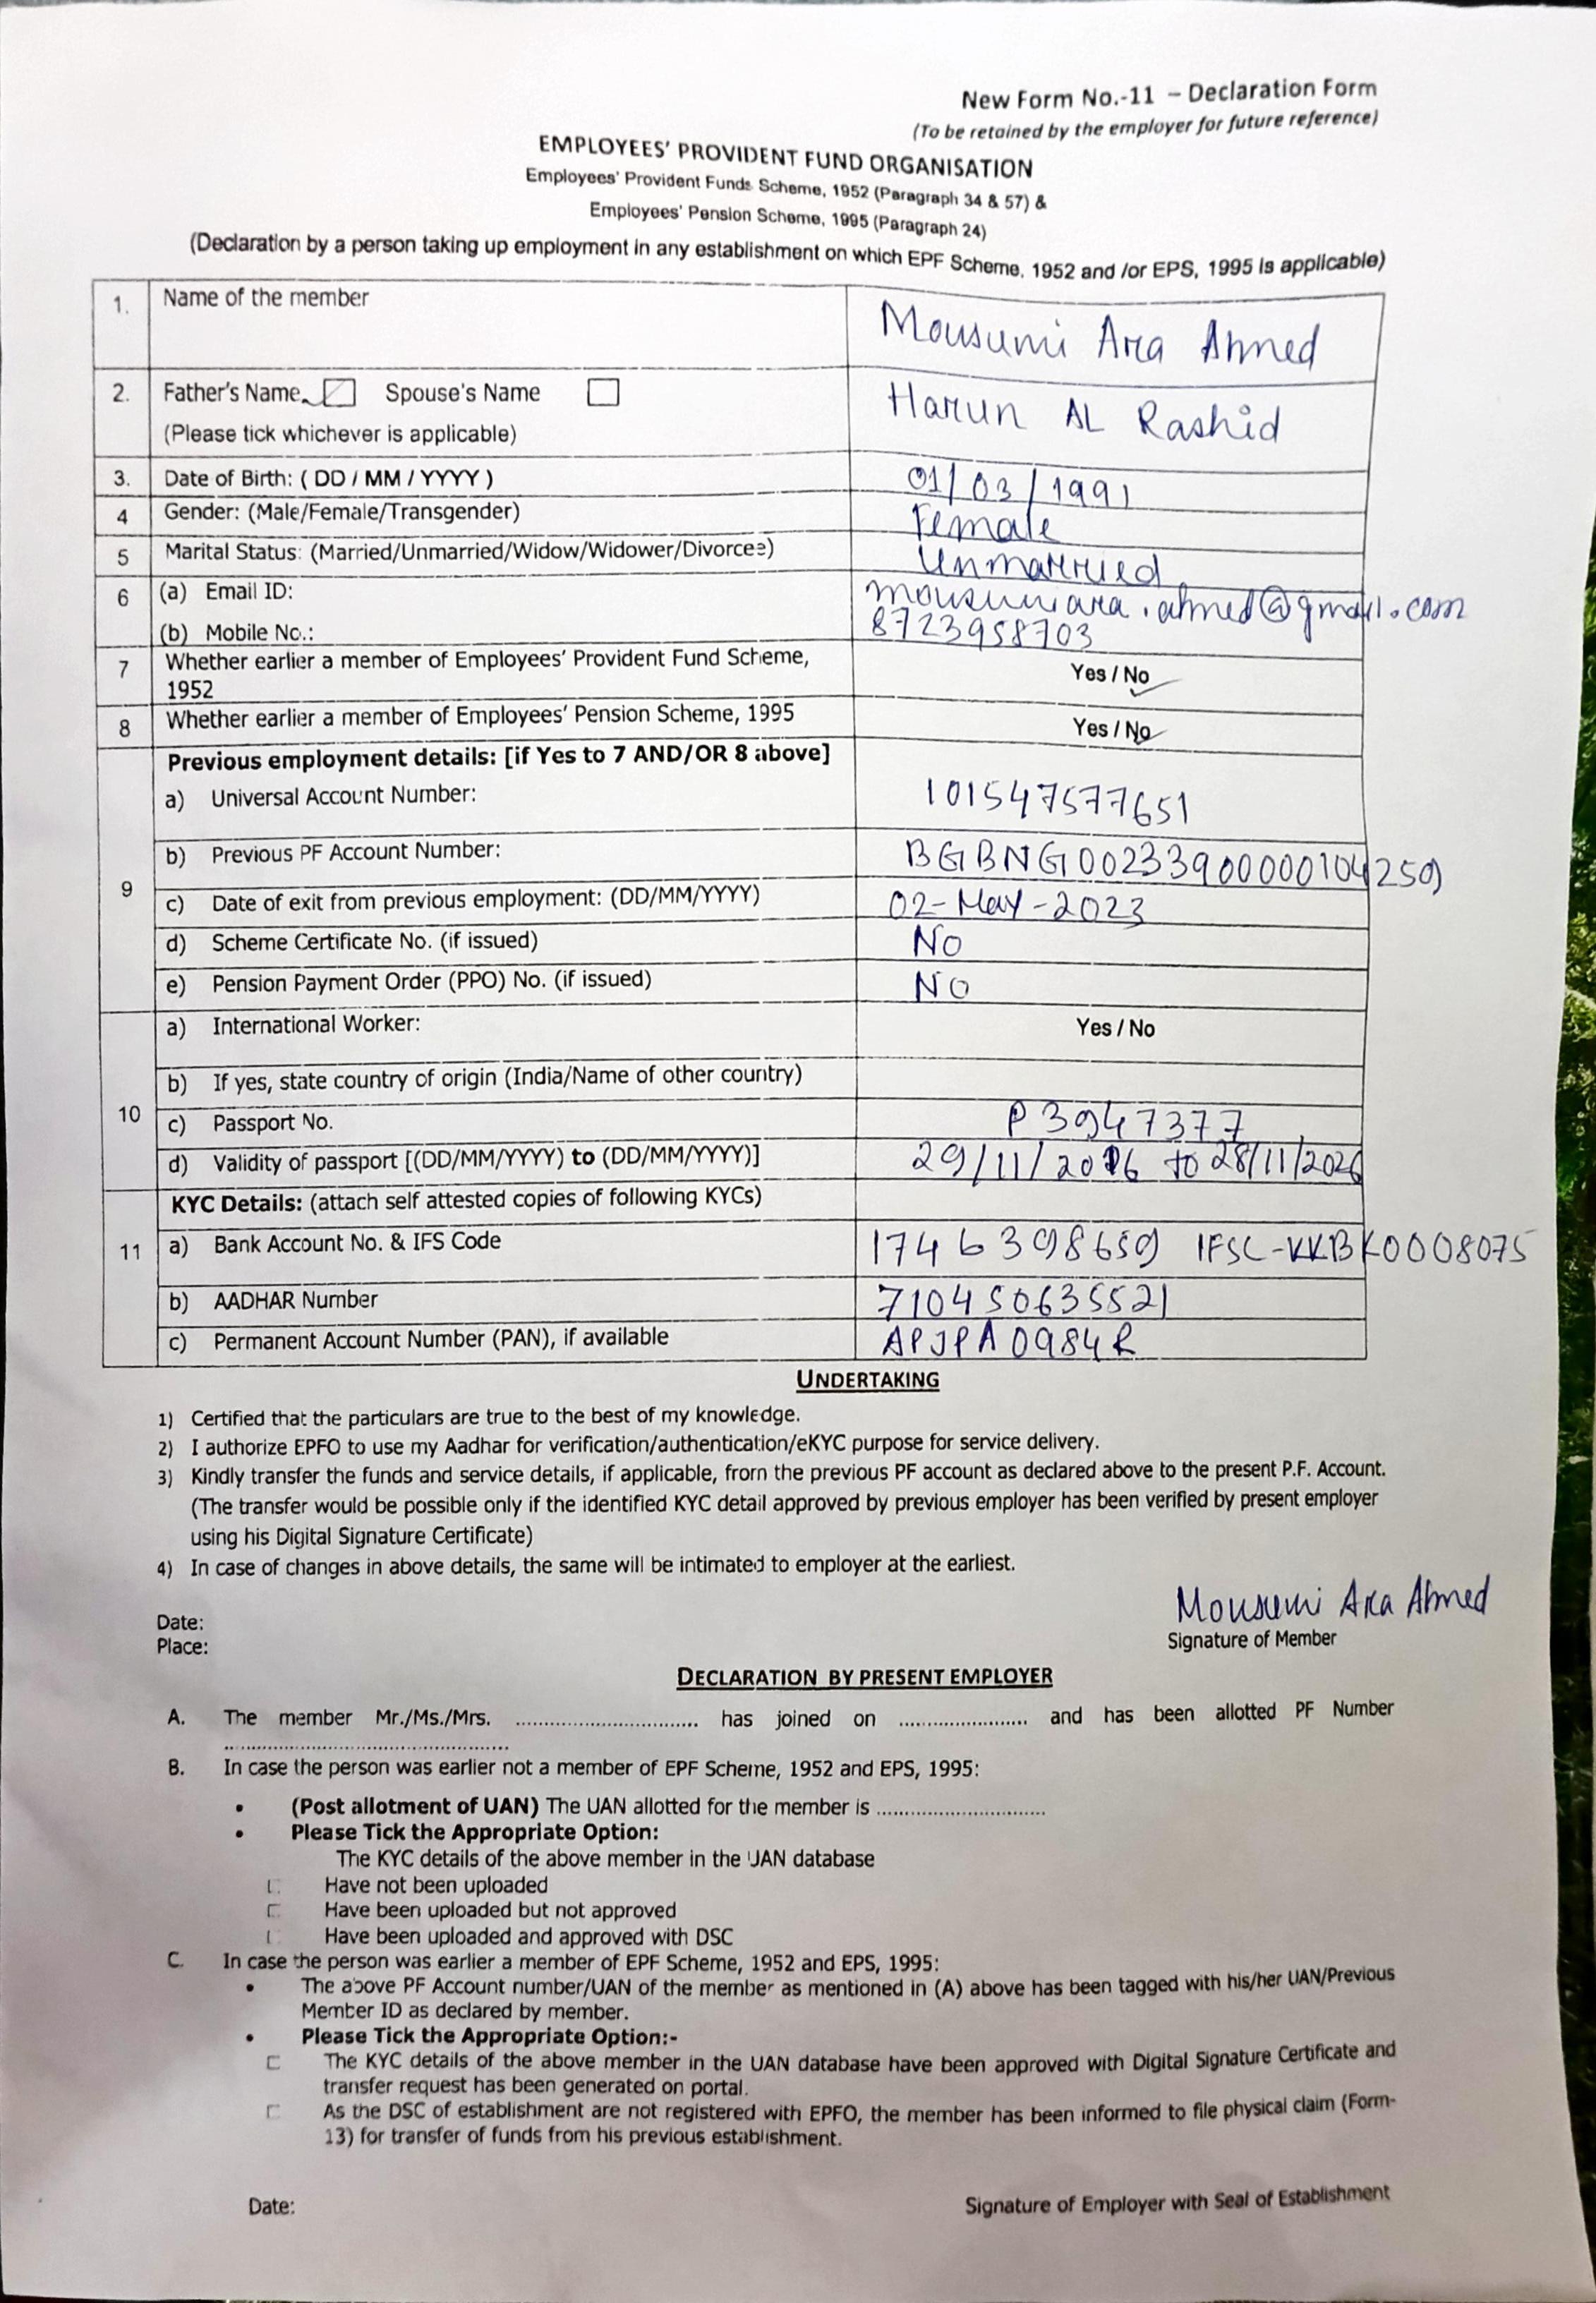 New Form No.-11 – Declaration Form
(To be retained by the employer for future reference)
EMPLOYEES' PROVIDENT FUND ORGANISATION
Employees' Provident Funds Scheme, 1952 (Paragraph 34 & 57) &
Employees' Pension Scheme, 1995 (Paragraph 24)
(Declaration by a person taking up employment in any establishment on which EPF Scheme, 1952 and /or EPS, 1995 is applicable)
1. Name of the member Mousumi Ara Ahmed
2. Father's Name Spouse's Name Harun AL Rashid
(Please tick whichever is applicable)
3. Date of Birth: ( DD / MM / YYYY ) 01/03/1991
4 Gender: (Male/Female/Transgender) Female
5 Marital Status: (Married/Unmarried/Widow/Widower/Divorcee) Unmarried
6 (a) Email ID: mousumiara.ahmed@gmail.com
(b) Mobile No.: 8723958703
7 Whether earlier a member of Employees' Provident Fund Scheme, 1952 Yes / No
8 Whether earlier a member of Employees' Pension Scheme, 1995 Yes / No
9 Previous employment details: [if Yes to 7 AND/OR 8 above]
a) Universal Account Number: 101547577651
b) Previous PF Account Number: BGBNG00233900000104259
c) Date of exit from previous employment: (DD/MM/YYYY) 02-May-2023
d) Scheme Certificate No. (if issued) NO
e) Pension Payment Order (PPO) No. (if issued) NO
10 a) International Worker: Yes / No
b) If yes, state country of origin (India/Name of other country)
c) Passport No. P3947377
d) Validity of passport [(DD/MM/YYYY) to (DD/MM/YYYY)] 29/11/2016 to 28/11/2026
11 KYC Details: (attach self attested copies of following KYCs)
a) Bank Account No. & IFS Code 1746398659 IFSC-KKBK0008075
b) AADHAR Number 710450635521
c) Permanent Account Number (PAN), if available APJPA0984R
UNDERTAKING
1) Certified that the particulars are true to the best of my knowledge.
2) I authorize EPFO to use my Aadhar for verification/authentication/eKYC purpose for service delivery.
3) Kindly transfer the funds and service details, if applicable, from the previous PF account as declared above to the present P.F. Account.
(The transfer would be possible only if the identified KYC detail approved by previous employer has been verified by present employer
using his Digital Signature Certificate)
4) In case of changes in above details, the same will be intimated to employer at the earliest.
Mousumi Ara Ahmed
Date:
Place: Signature of Member
DECLARATION BY PRESENT EMPLOYER
A. The member Mr./Ms./Mrs. .............................. has joined on ..................... and has been allotted PF Number
................................................
B. In case the person was earlier not a member of EPF Scheme, 1952 and EPS, 1995:
• (Post allotment of UAN) The UAN allotted for the member is ............................
• Please Tick the Appropriate Option:
The KYC details of the above member in the UAN database
Have not been uploaded
Have been uploaded but not approved
Have been uploaded and approved with DSC
C. In case the person was earlier a member of EPF Scheme, 1952 and EPS, 1995:
• The above PF Account number/UAN of the member as mentioned in (A) above has been tagged with his/her UAN/Previous
Member ID as declared by member.
• Please Tick the Appropriate Option:-
The KYC details of the above member in the UAN database have been approved with Digital Signature Certificate and
transfer request has been generated on portal.
As the DSC of establishment are not registered with EPFO, the member has been informed to file physical claim (Form-
13) for transfer of funds from his previous establishment.
Date: Signature of Employer with Seal of Establishment